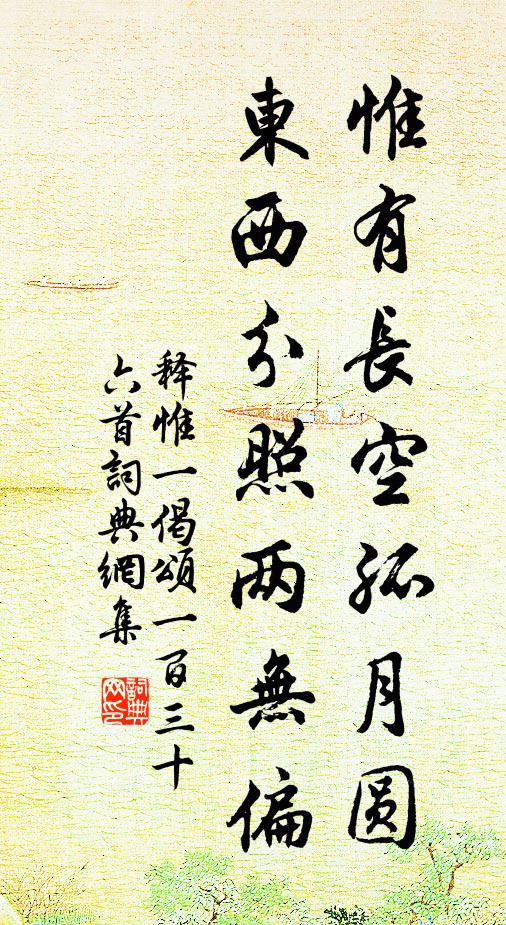 惟有長空孤月圆
東西分照两無偏
释惟一偈頌一百三十
六首詞典網集
詞典网印